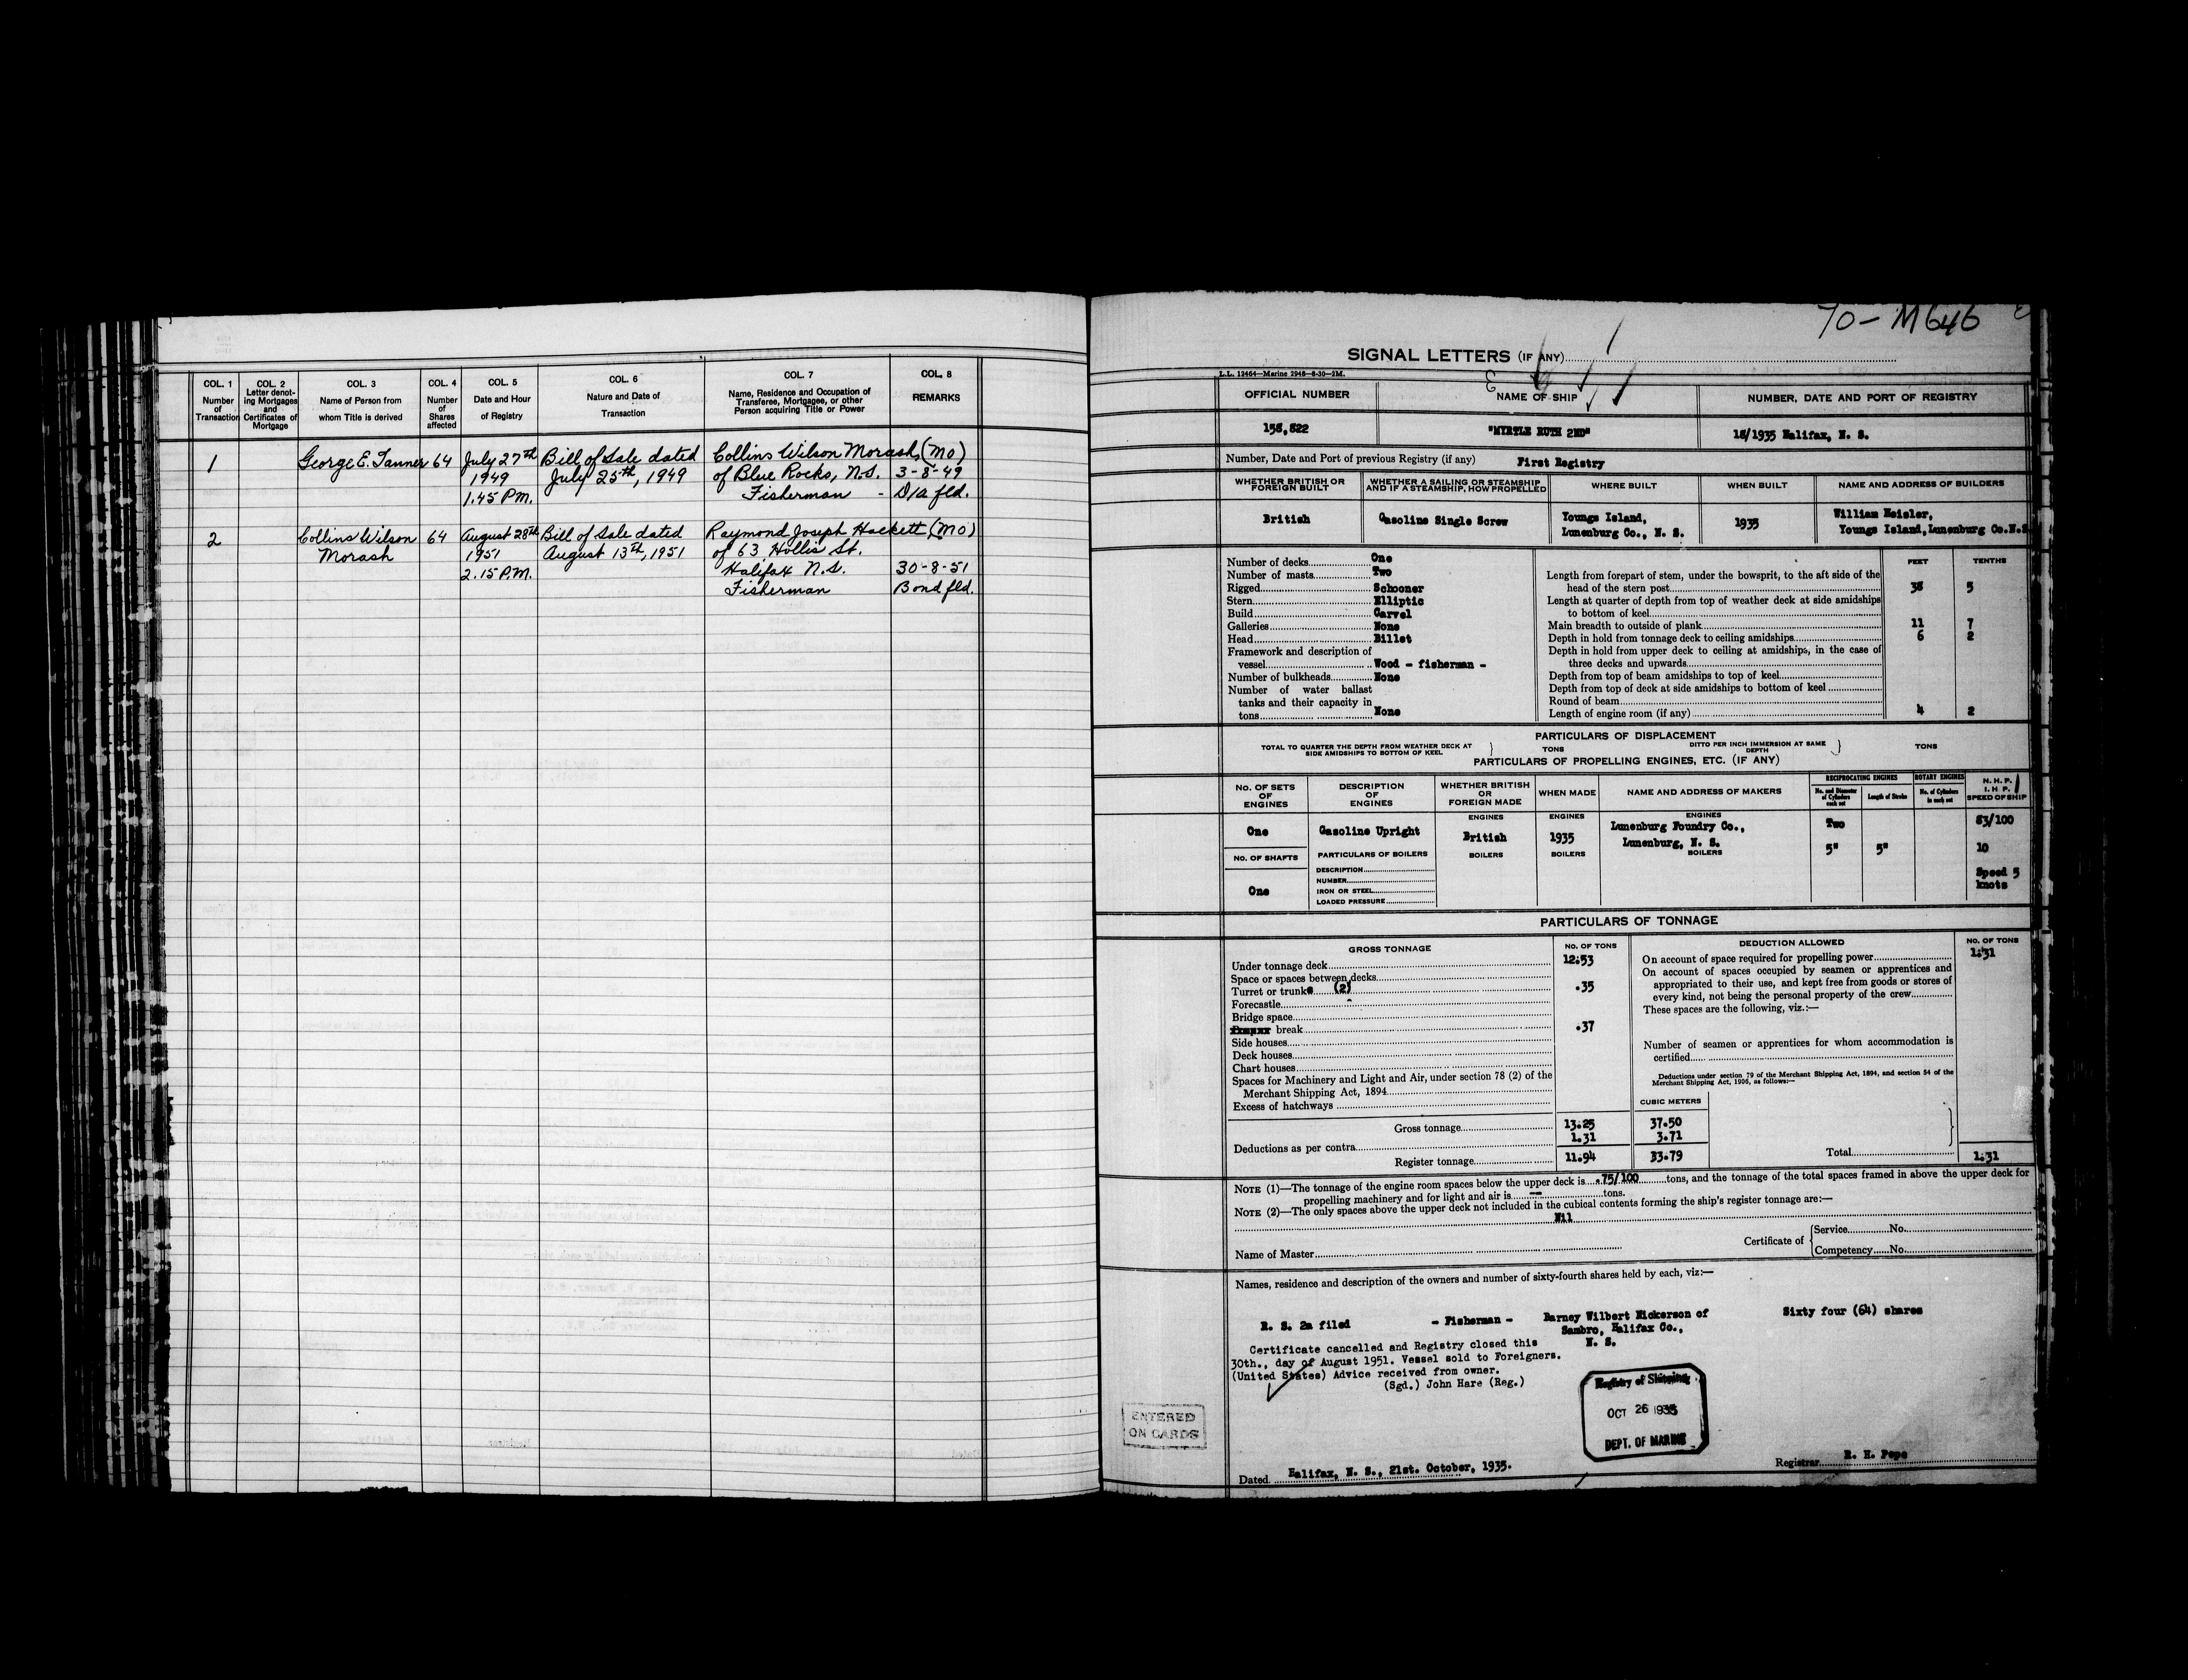 COL. 1 Number of Transaction
COL. 2 Letter denoting Mortgages and Certificates of Mortgage
COL. 3 Name of Person from whom Title is derived
COL. 4 Number of Shares affected
COL. 5 Date and Hour of Registry
COL. 6 Nature and Date of Transaction
COL. 7 Name, Residence and Occupation of Transferee, Mortgagee, or other Person acquiring Title or Power
COL. 8 REMARKS
1 George E. Tanner 64 July 27th Bill of Sale dated Collins Wilson Morash, (MO)
1949 July 25th, 1949 of Blue Rocks, N.S. 3-8-49
1.45 P.M. Fisherman - D/a fld.
2 Collins Wilson 64 August 28th Bill of Sale dated Raymond Joseph Hackett (MO)
Morash 1951 August 13th, 1951 of 63 Hollis St.
2.15 P.M. Halifax N.S. 30-8-51
Fisherman Bond fld.
70-M646
SIGNAL LETTERS (IF ANY)
L.L. 12464—Marine 2948—8-30—2M.
OFFICIAL NUMBER NAME OF SHIP NUMBER, DATE AND PORT OF REGISTRY
158,822 "MYRTLE RUTH 2ND" 18/1935 Halifax, N. S.
Number, Date and Port of previous Registry (if any) First Registry
WHETHER BRITISH OR FOREIGN BUILT
WHETHER A SAILING OR STEAMSHIP AND IF A STEAMSHIP, HOW PROPELLED
WHERE BUILT
WHEN BUILT
NAME AND ADDRESS OF BUILDERS
British Gasoline Single Screw Youngs Island, 1935 William Heisler,
Lunenburg Co., N. S. Youngs Island, Lunenburg Co. N.S.
FEET TENTHS
Number of decks One
Number of masts Two
Rigged Schooner
Stern Elliptic
Build Carvel
Galleries None
Head Billet
Framework and description of
vessel Wood - fisherman -
Number of bulkheads None
Number of water ballast
tanks and their capacity in
tons None
Length from forepart of stem, under the bowsprit, to the aft side of the
head of the stern post 38 5
Length at quarter of depth from top of weather deck at side amidships
to bottom of keel
Main breadth to outside of plank 11 7
Depth in hold from tonnage deck to ceiling amidships 6 2
Depth in hold from upper deck to ceiling at amidships, in the case of
three decks and upwards
Depth from top of beam amidships to top of keel
Depth from top of deck at side amidships to bottom of keel
Round of beam
Length of engine room (if any) 4 2
PARTICULARS OF DISPLACEMENT
TOTAL TO QUARTER THE DEPTH FROM WEATHER DECK AT SIDE AMIDSHIPS TO BOTTOM OF KEEL } TONS
DITTO PER INCH IMMERSION AT SAME DEPTH } TONS
PARTICULARS OF PROPELLING ENGINES, ETC. (IF ANY)
No. OF SETS OF ENGINES
DESCRIPTION OF ENGINES
WHETHER BRITISH OR FOREIGN MADE
WHEN MADE
NAME AND ADDRESS OF MAKERS
RECIPROCATING ENGINES
No. and Diameter of Cylinders each set
Length of Stroke
ROTARY ENGINES
No. of Cylinders in each set
N. H. P.
I. H P.
SPEED OF SHIP
ENGINES ENGINES ENGINES
One Gasoline Upright British 1935 Lunenburg Foundry Co., Two 83/100
Lunenburg, N. S.
NO. OF SHAFTS PARTICULARS OF BOILERS BOILERS BOILERS BOILERS 5" 5" 10
One
DESCRIPTION
NUMBER
IRON OR STEEL
LOADED PRESSURE
Speed 5
knots
PARTICULARS OF TONNAGE
GROSS TONNAGE NO. OF TONS DEDUCTION ALLOWED NO. OF TONS
Under tonnage deck 12.53
Space or spaces between decks
Turret or trunks (2) .35
Forecastle
Bridge space
break .37
Side houses
Deck houses
Chart houses
Spaces for Machinery and Light and Air, under section 78 (2) of the
Merchant Shipping Act, 1894
Excess of hatchways
Gross tonnage 13.25 37.50
Deductions as per contra 1.31 3.71
Register tonnage 11.94 33.79
On account of space required for propelling power 1.31
On account of spaces occupied by seamen or apprentices and
appropriated to their use, and kept free from goods or stores of
every kind, not being the personal property of the crew
These spaces are the following, viz.:—
Number of seamen or apprentices for whom accommodation is
certified
Deductions under section 79 of the Merchant Shipping Act, 1894, and section 54 of the
Merchant Shipping Act, 1906, as follows:—
CUBIC METERS
Total 1.31
NOTE (1)—The tonnage of the engine room spaces below the upper deck is .75/100 tons, and the tonnage of the total spaces framed in above the upper deck for
propelling machinery and for light and air is -- tons.
NOTE (2)—The only spaces above the upper deck not included in the cubical contents forming the ship's register tonnage are:—
Nil
Name of Master
Certificate of { Service No.
Competency No.
Names, residence and description of the owners and number of sixty-fourth shares held by each, viz:—
R. S. 2a filed - Fisherman - Barney Wilbert Nickerson of Sixty four (64) shares
Sambro, Halifax Co.,
N. S.
Certificate cancelled and Registry closed this
30th., day of August 1951. Vessel sold to Foreigners.
(United States) Advice received from owner.
(Sgd.) John Hare (Reg.)
Registry of Shipping
OCT 26 1935
DEPT. OF MARINE
ENTERED
ON CARDS
Dated Halifax, N. S., 21st. October, 1935.
Registrar R. H. Pope